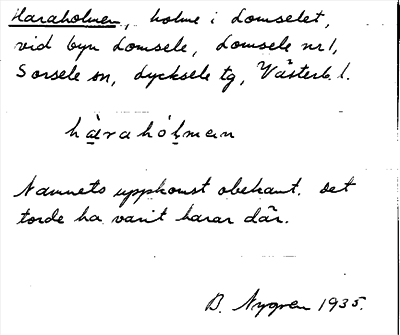 Haraholmen, holme i Lomselet,
vid byn Lomsele, Lomsele nr 1,
Sorsele sn, Lycksele tg, Västerb. l.
hàrahól̥mɐn
Namnets uppkomst obekant. Det
torde ha varit harar där.
B. Nygren 1935.